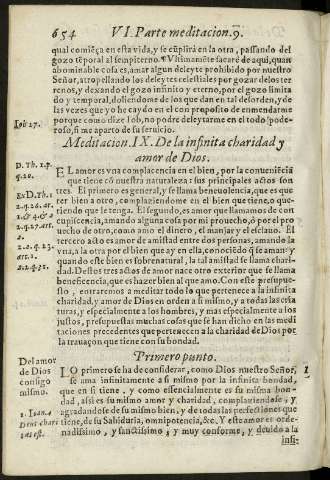 654 VI. Parte meditacion.9.
qual comiẽça en esta vida, y se cũplirà en la otra, passando del
gozo tẽporal al sempiterno. ¶ Vltimamẽte sacarè de aqui, quan
abominable cosa es, amar algun deleyte prohibido por nuestro
Señor, atropellando los deleytes celestiales por gozar de los ter
renos, y dexando el gozo infinito y eterno, por el gozo limita
do y temporal, doliendome de los que dan en tal desorden, y de
las vezes que yo he caydo en el con proposito de enmendarme
Iob 27. porque como dize Iob, no podre deleytarme en el todo pode-
roso, si me aparto de su seruicio.
Meditacion. IX. De la infinita charidad y
amor de Dios.
D. Th. 1. p.
q. 20.
EL amor es vna complacencia en el bien, por la conueniẽcia
que tiene cõ nuestra naturaleza: sus principales actos son
Ex D. Th. 1. tres El primero es general, y se llama beneuolencia, que es que
2. q. 26. ar. rer bien a otro, complaziendome en el bien que tiene, o que-
riendo que le tenga. El segundo, es amor que llamamos de con
cupiscencia, amando alguna cosa por mi prouecho, ò por el pro
uecho de otro, como amo el dinero, el manjar y el esclauo. El
tercero acto es amor de amistad entre dos personas, amando la
2. 2. q. 23. vna, a la otra por el bien que ay en ella, conociẽdo q̃ se aman: y
art. 1. quando este bien es sobrenatural, la tal amistad se llama chari-
dad. Destos tres actos de amor nace otro exterior que se llama
beneficencia, que es hazer bien al que amo. Con este presupue-
sto, entraremos a meditar todo lo que pertenece a la infinita
charidad, y amor de Dios en orden a si mismo, y a todas las cria
turas, y especialmente a los hombres, y mas especialmente a los
justos, presupuestas muchas cosas que se han dicho en las medi
taciones precedentes que pertenecen a la charidad de Dios por
la trauaçon que tiene con su bondad.
Primero punto.
Del amor
de Dios
consigo
mismo.
LO primero se ha de considerar, como Dios nuestro Señor, 1
se ama infinitamente a si mismo por la infinita bondad,
que en si tiene, y como essencialmente es su misma bon-
dad, assi es su mismo amor y charidad, complaziendose, y
1. Ioan. 4 agradandose de su mismo bien, y de todas las perfectiones que
Deus chari tiene, de su Sabiduria, omnipotencia, &c. Y este amor es orde-
tas est. nadissimo, y sanctissimo, y muy conforme, y deuido a la
infi-